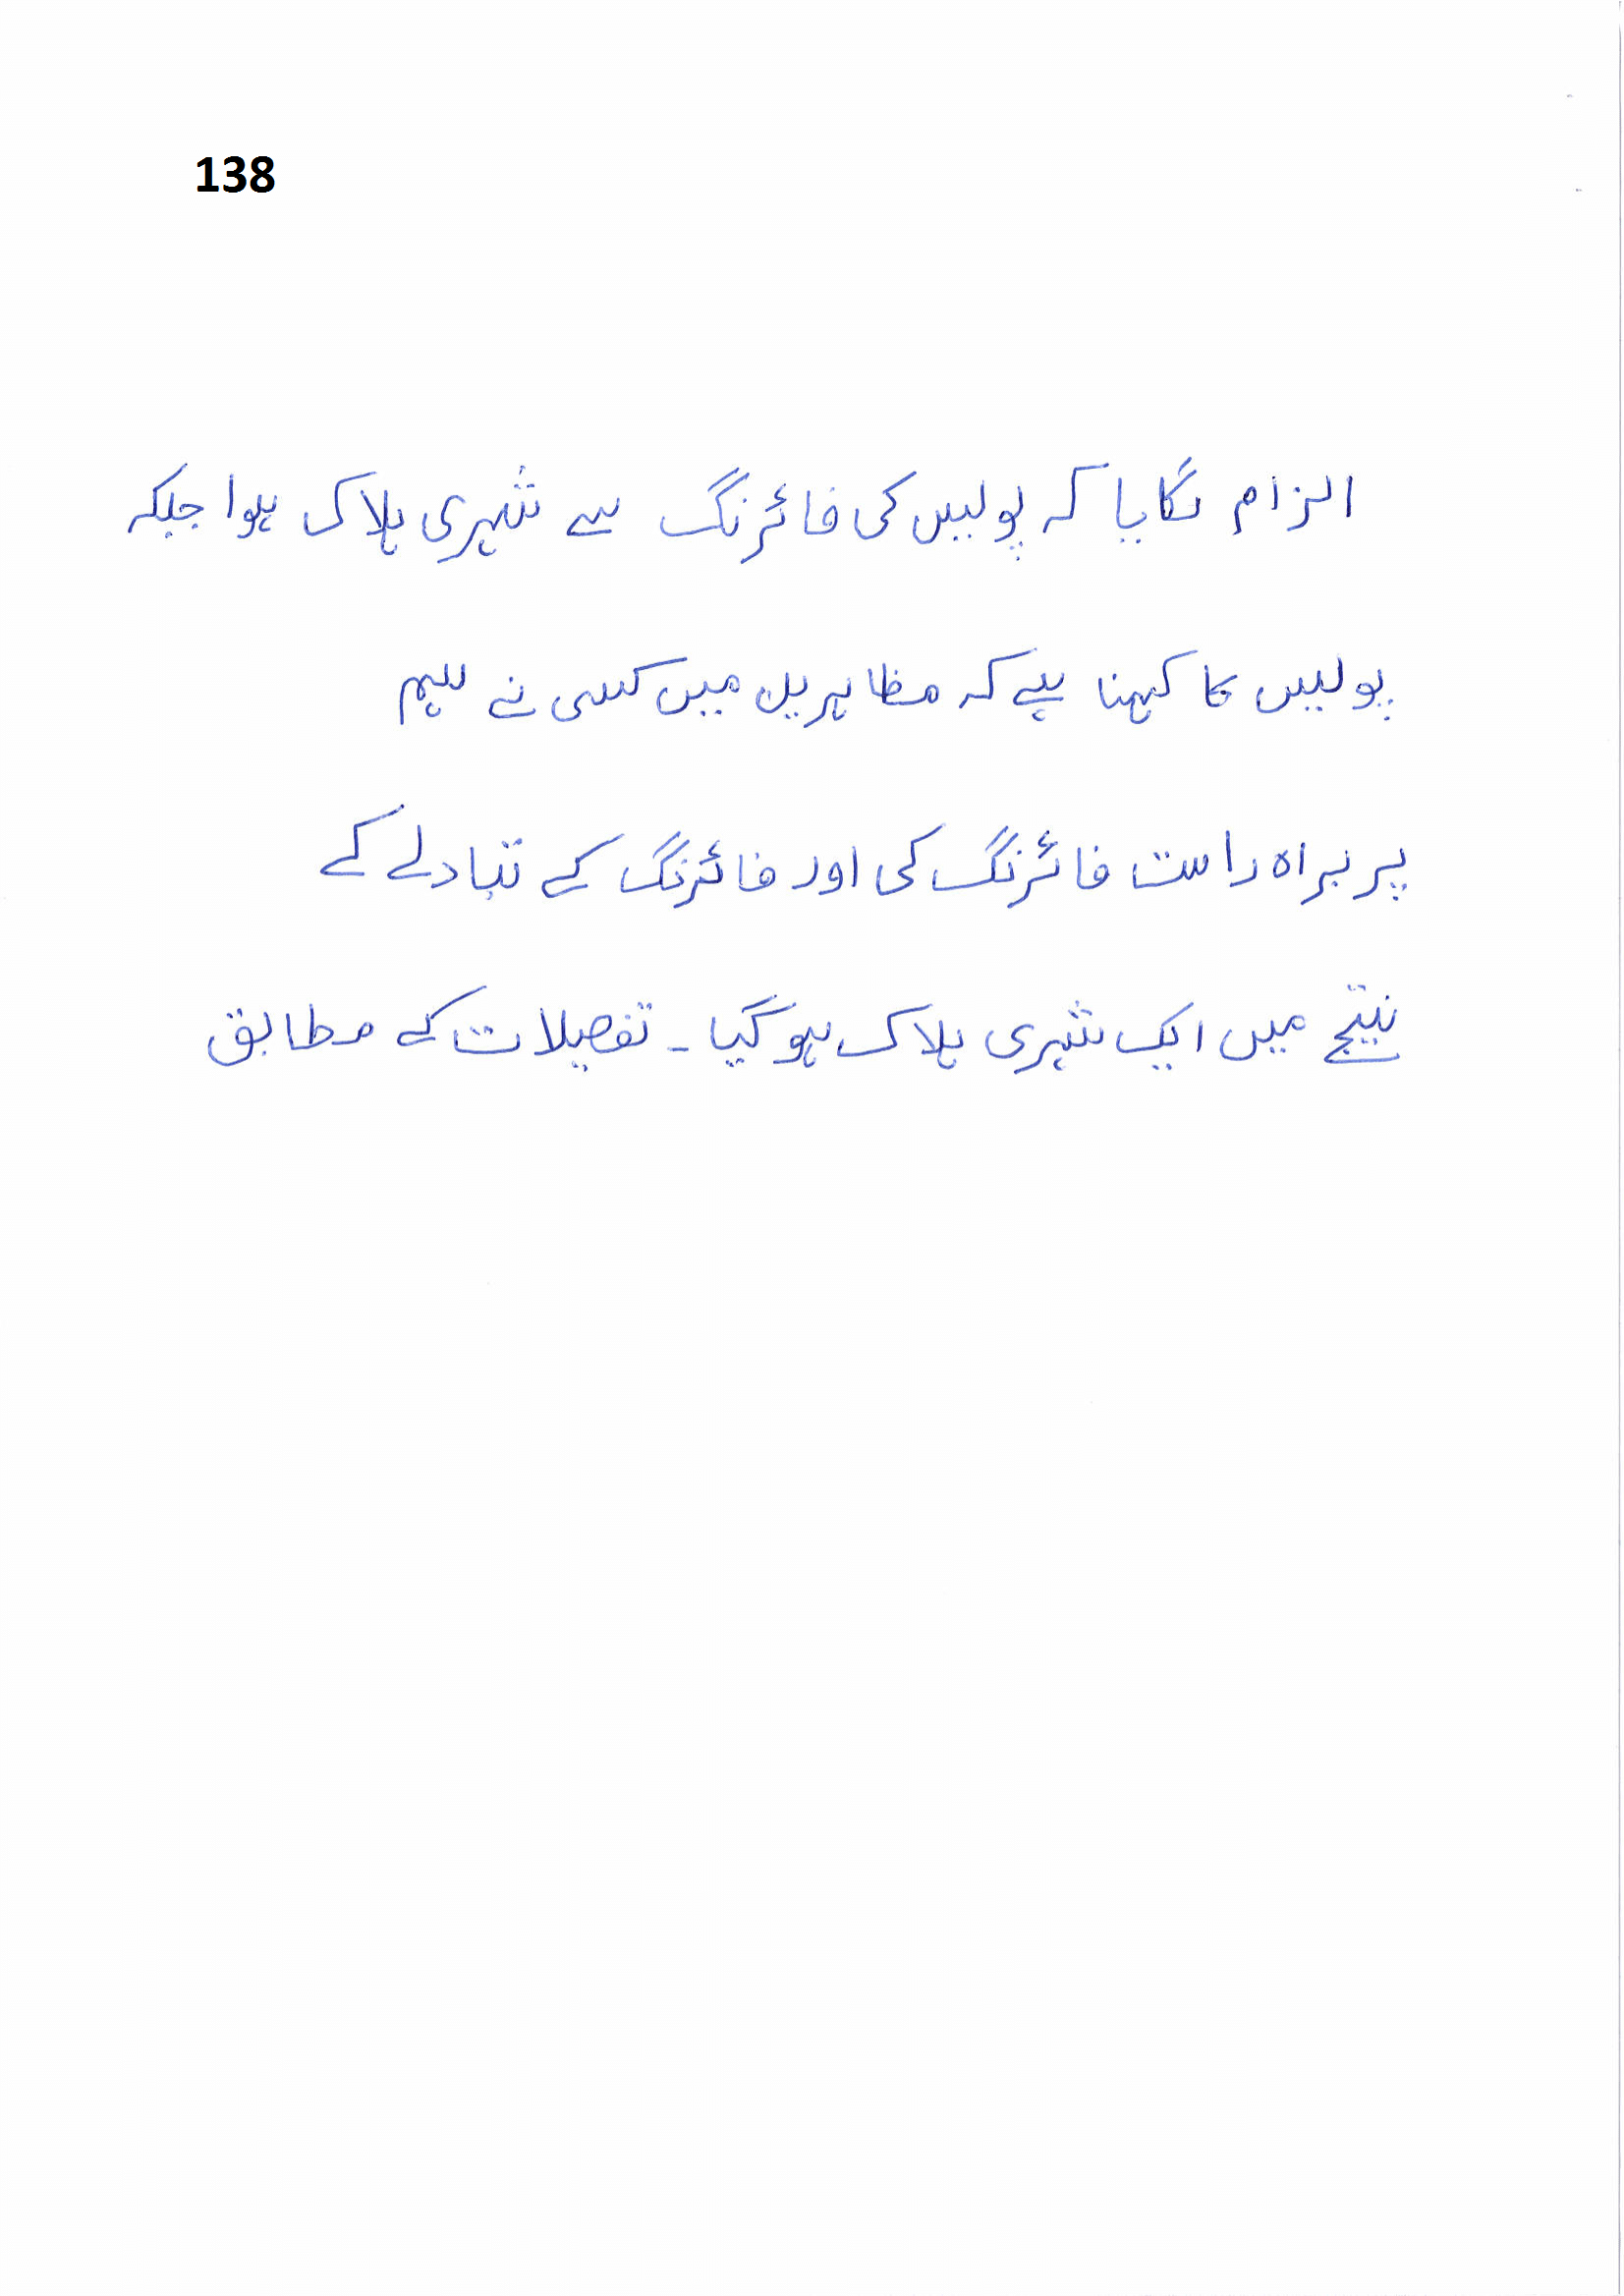 138
الزام لگایا کہ پولیس کی فائرنگ سے شہری ہلاک ہوا جبکہ
پولیس کا کہنا ہے کہ مظاہرین میں کسی نے ہم
پر براہ راست فائرنگ کی اور فائرنگ کے تبادلے کے
نتیجے میں ایک شہری ہلاک ہو گیا۔ تفصیلات کے مطابق